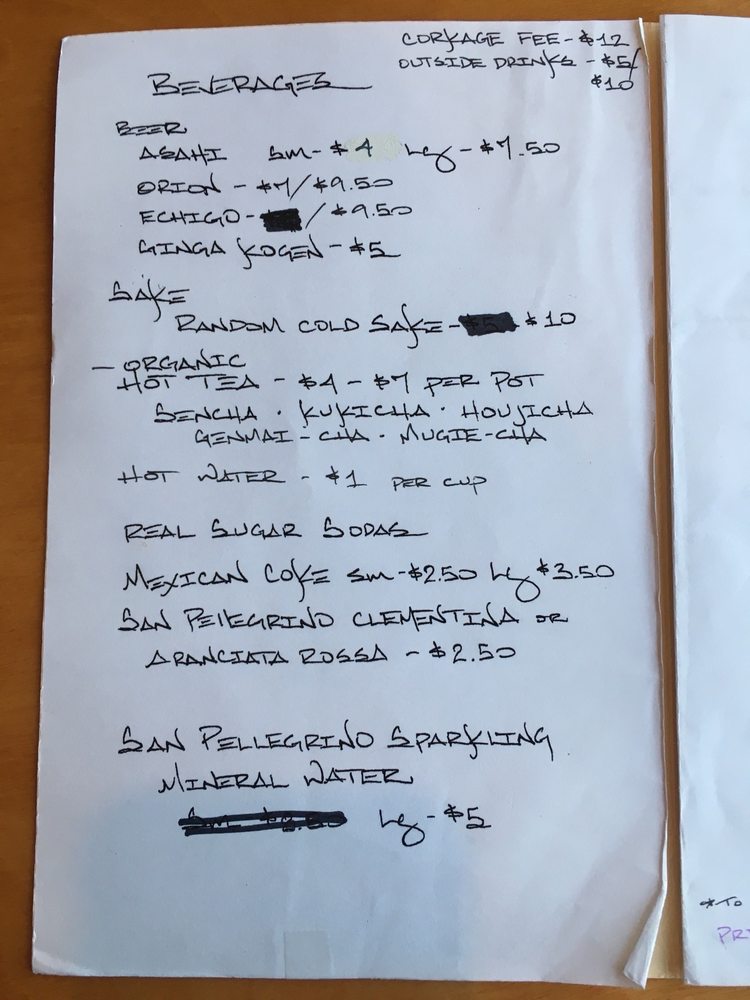 CORKAGE FEE - $12
OUTSIDE DRINKS - $5/
$10
BEVERAGES
BEER
ASAHI sm - $4 Lg - $7.50
ORION - $7/$9.50
ECHIGO - / $9.50
GINGA KOGEN - $5
SAKE
RANDOM COLD SAKE - $10
- ORGANIC
HOT TEA - $4 - $7 PER POT
SENCHA · KUKICHA · HOUJICHA
GENMAI - CHA · MUGIE-CHA
HOT WATER - $1 PER CUP
REAL SUGAR SODAS
MEXICAN COKE sm - $2.50 Lg $3.50
SAN PELLEGRINO CLEMENTINA OR
ARANCIATA ROSSA - $2.50
SAN PELLEGRINO SPARKLING
MINERAL WATER
Lg - $5
*TO